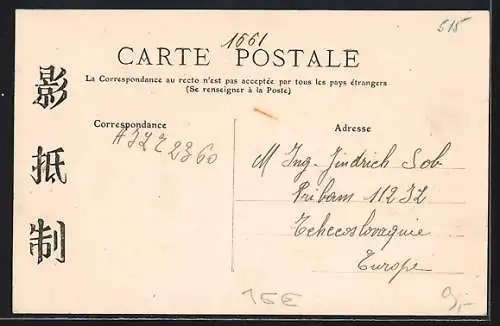 1661
515
CARTE POSTALE
La Correspondance au recto n'est pas acceptée par tous les pays étrangers
(Se renseigner à la Poste)
影抵制
Correspondance
Adresse
M Ing. Jindrich Sob
Pribam 112 II
Tchecoslovaquie
Europe
15E